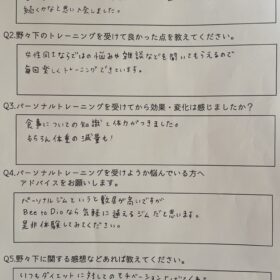 続くかなと思い入会しました。
Q2.野々下のトレーニングを受けて良かった点を教えてください。
女性同士ならではの悩みや雑談などを聞いてもらえるので
毎回楽しくトレーニングできています。
Q3.パーソナルトレーニングを受けてから効果・変化は感じましたか？
食事についての知識と体力がつきました。
もちろん体重の減量も！
Q4.パーソナルトレーニングを受けようか悩んでいる方へ
アドバイスをお願いします。
パーソナルジムというと敷居が高いですが
Bee to Dioなら気軽に通えるジムだと思います。
是非体験してみてください。
Q5.野々下に関する感想などあれば教えてください。
いつもダイエットに対してのモチベーション